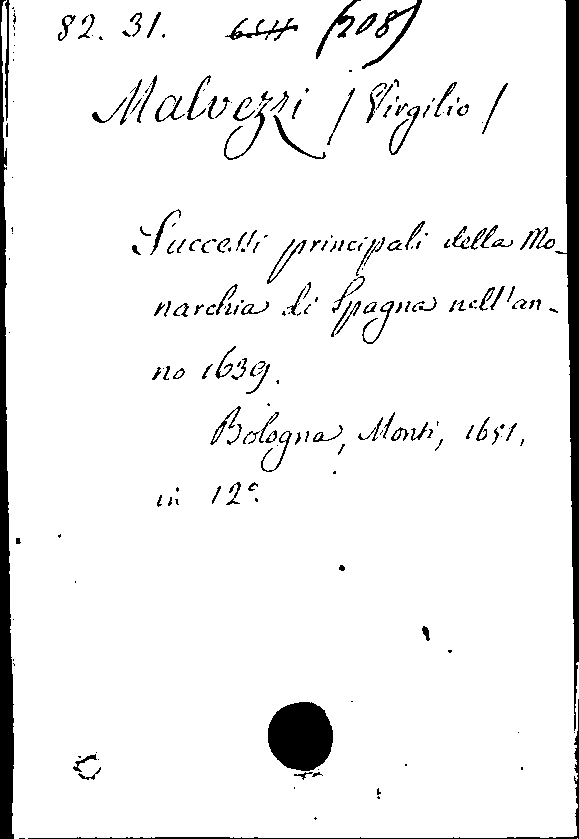 82. 31. (208)
Malvezzi / Virgilio /
Successi principali della Mo-
narchia di Spagna nell'an-
no 1639.
Bologna, Monti, 1651,
in 12°.